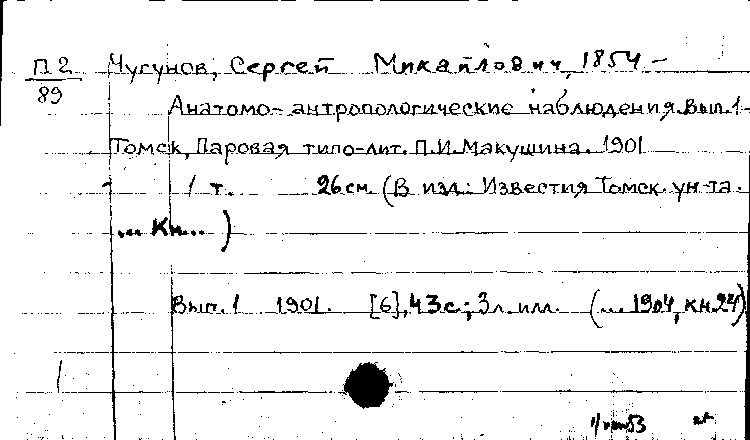 П2 Чугунов, Сергей Михайлович, 1854 –
89
Анатомо-антропологические наблюдения. Вып. 1-
Томск, Паровая типо-лит. П.И.Макушина. 1901
1 т. 26 см. (В изд.: Известия Томск. ун-та.
... Кн... )
Вып. 1 1901. [6], 43 с.; 3 л. илл. (... 1904, кн. 24)